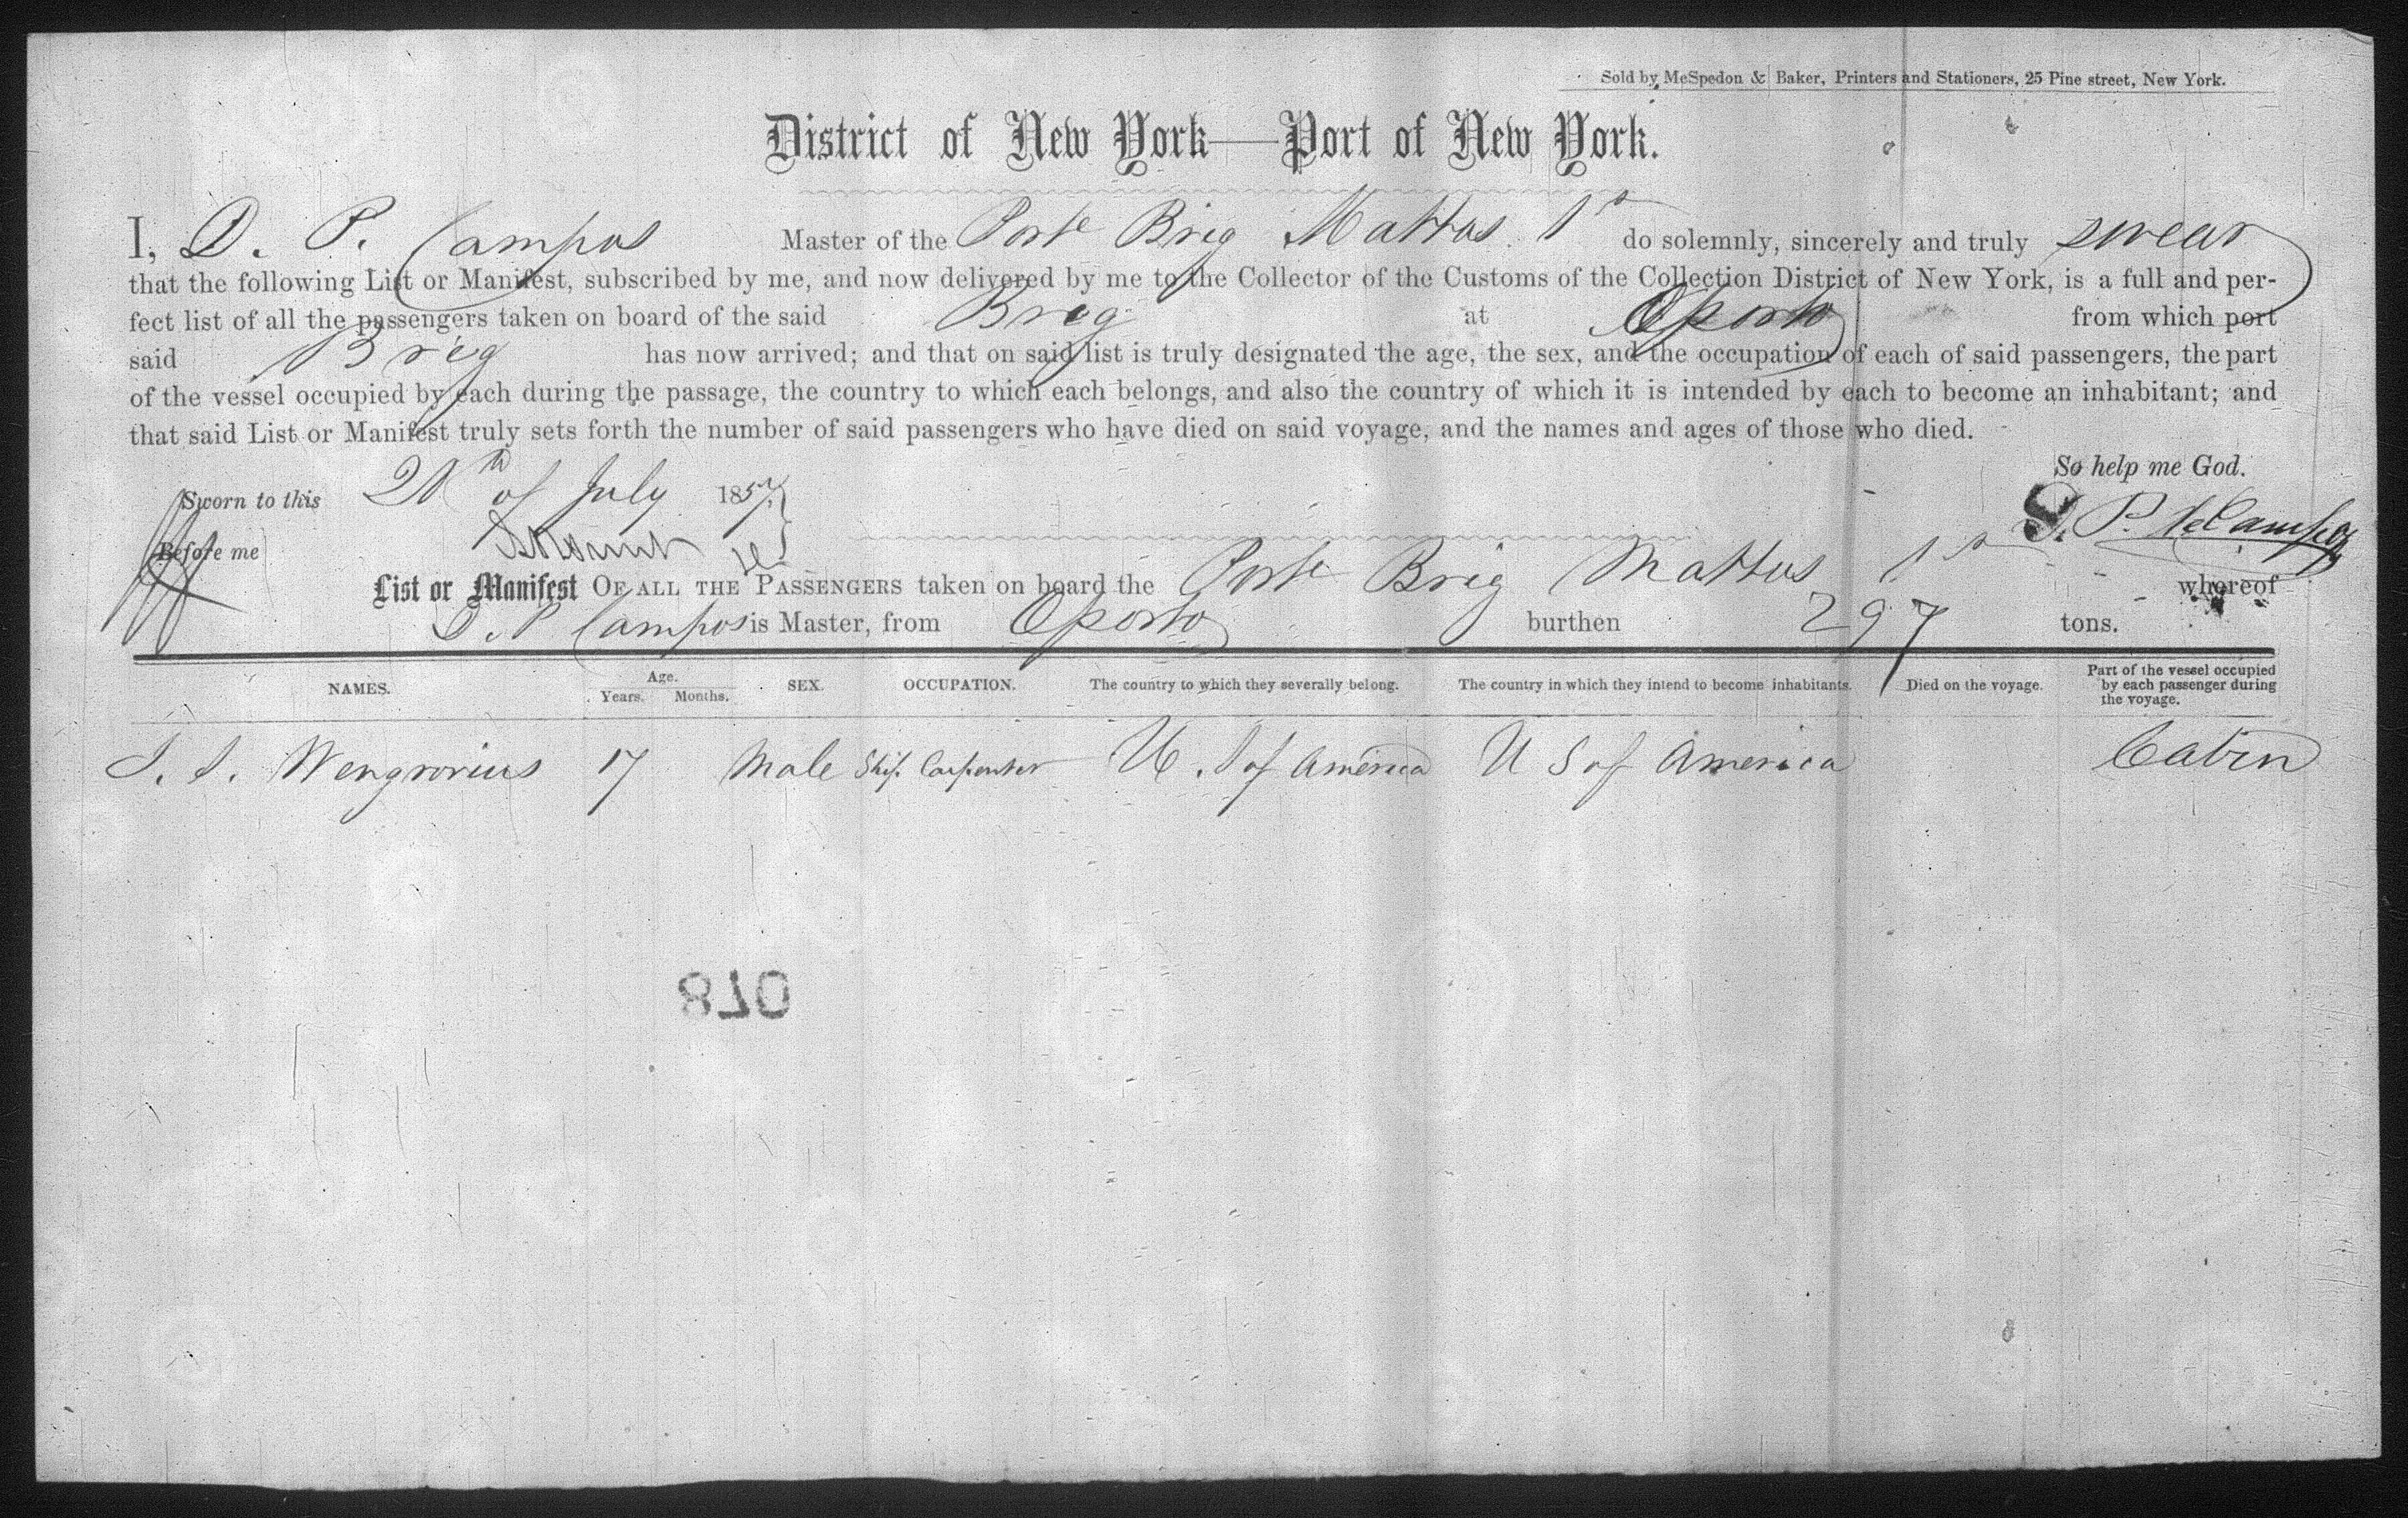 Sold by McSpedon & Baker, Printers and Stationers, 25 Pine street, New York.
District of New York—Port of New York.
I, D. P. Campos Master of the Porte Brig Mattos 1º do solemnly, sincerely and truly swear
that the following List or Manifest, subscribed by me, and now delivered by me to the Collector of the Customs of the Collection District of New York, is a full and per-
fect list of all the passengers taken on board of the said Brig at Oporto from which port
said Brig has now arrived; and that on said list is truly designated the age, the sex, and the occupation of each of said passengers, the part
of the vessel occupied by each during the passage, the country to which each belongs, and also the country of which it is intended by each to become an inhabitant; and
that said List or Manifest truly sets forth the number of said passengers who have died on said voyage, and the names and ages of those who died.
So help me God.
Sworn to this of July 1857
Before me
D. P. Campos
List or Manifest OF ALL THE PASSENGERS taken on board the Porte Brig Mattos 1º whereof
D. P Campos is Master, from Oporto burthen 297 tons.
NAMES. Age. Years. Months. SEX. OCCUPATION. The country to which they severally belong. The country in which they intend to become inhabitants. Died on the voyage. Part of the vessel occupied by each passenger during the voyage.
J. J. Wengrovius 17 Male Ship Carpenter U. S of America U S of America Cabin
078